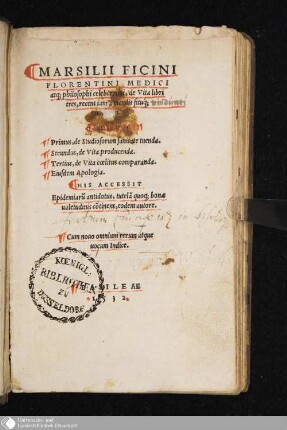 MARSILII FICINI
FLORENTINI MEDICI
atq; philosophi celeberrimi, de Vita libri
tres, recens iam
Primus, de Studiosorum sanitate tuenda.
Secundus, de Vita producenda.
Tertius, de Vita cœlitus comparanda.
Eiusdem Apologia.
HIS ACCESSIT
Epidemiarū antidotus, tutelā quoq; bonæ
ualetudinis cōtinens, eodem autore.
Cum nouo omnium rerum atque
uocum Indice.
KOENIGL:
BIBLIOTHEK
ZU
DÜSSELDORF
SILEAE
Universitäts- und
Landesbibliothek Düsseldorf